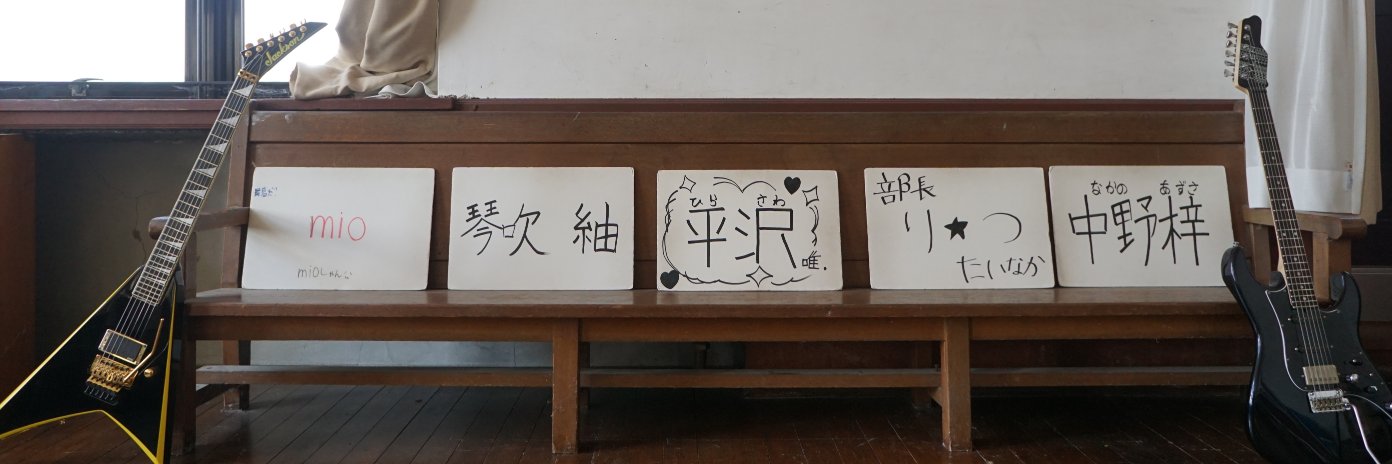 Jackson
mio
mioしゃん
琴吹 紬
ひら さわ
平沢
唯.
部長
り★つ
たいなか
なかの あずさ
中野梓